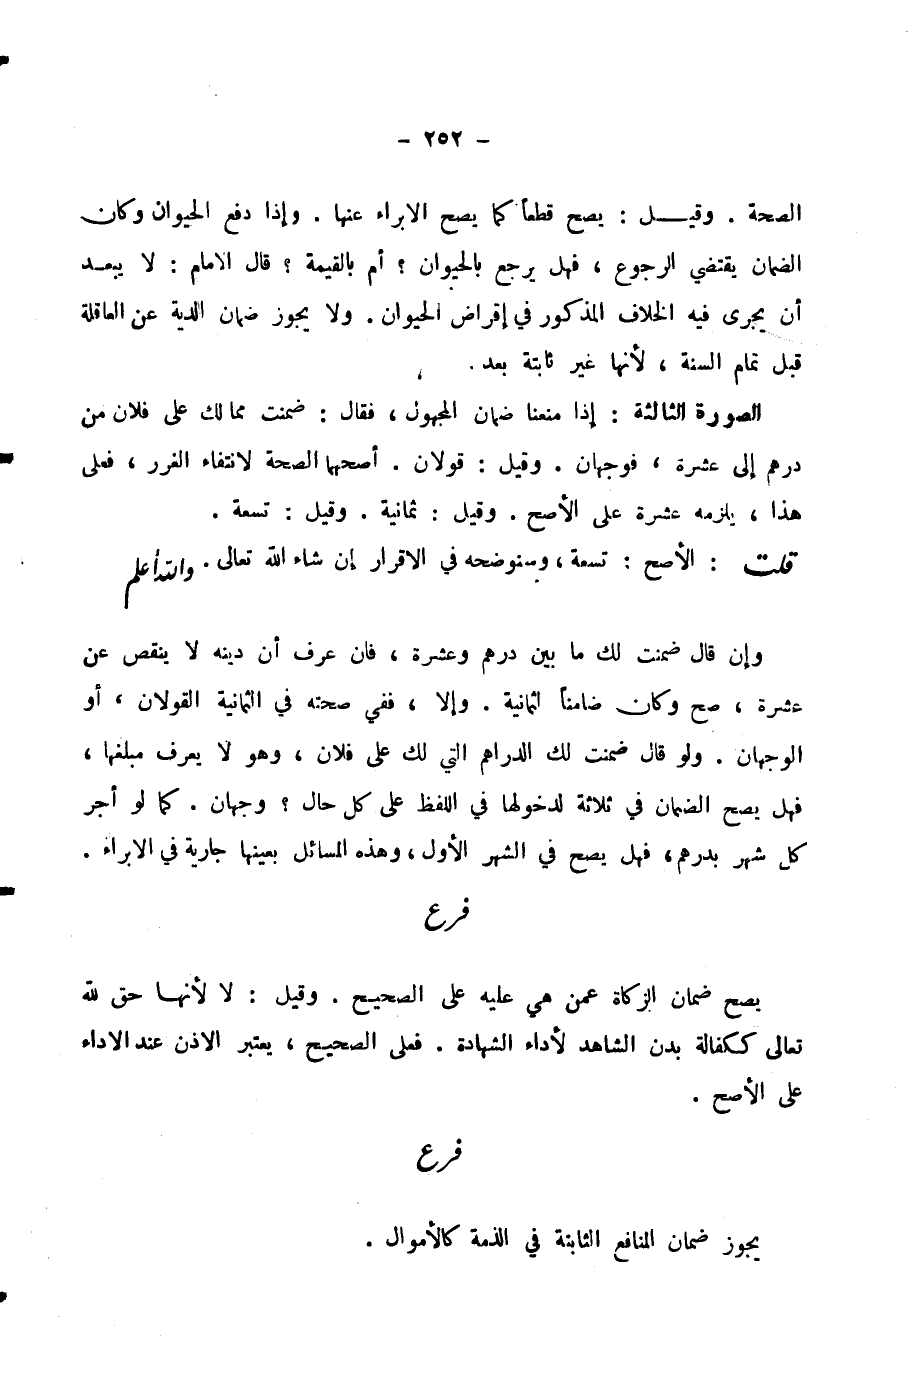 - ٢٥٢ -
الصحة . وقيــل : يصح قطعاً كما يصح الابراء عنها . وإذا دفع الحيوان وكان
الضمان يقتضي الرجوع ، فهل يرجع بالحيوان ؟ أم بالقيمة ؟ قال الامام : لا يبعــد
أن يجرى فيه الخلاف المذكور في إقراض الحيوان . ولا يجوز ضمان الدية عن العاقلة
قبل تمام السنة ، لأنها غير ثابتة بعد .
الصورة الثالثة : إذا منعنا ضمان المجهول ، فقال : ضمنت مما لك على فلان من
درهم إلى عشرة ، فوجهان . وقيل : قولان . أصحهما الصحة لانتفاء الغرر ، فعلى
هذا ، يلزمه عشرة على الأصح . وقيل : ثمانية . وقيل : تسعة .
قلت : الأصح : تسعة ، وسنوضحه في الاقرار إن شاء الله تعالى . والله أعلم
وإن قال ضمنت لك ما بين درهم وعشرة ، فان عرف أن دينه لا ينقص عن
عشرة ، صح وكان ضامناً لثمانية . وإلا ، ففي صحته في الثمانية القولان ، أو
الوجهان . ولو قال ضمنت لك الدراهم التي لك على فلان ، وهو لا يعرف مبلغها ،
فهل يصح الضمان في ثلاثة لدخولها في اللفظ على كل حال ؟ وجهان . كما لو أجر
كل شهر بدرهم ، فهل يصح في الشهر الأول ، وهذه المسائل بعينها جارية في الابراء .
فرع
يصح ضمان الزكاة عمن هي عليه على الصحيح . وقيل : لا لأنهــا حق لله
تعالى ككفالة بدن الشاهد لأداء الشهادة . فعلى الصحيح ، يعتبر الاذن عند الاداء
على الأصح .
فرع
يجوز ضمان المنافع الثابتة في الذمة كالأموال .